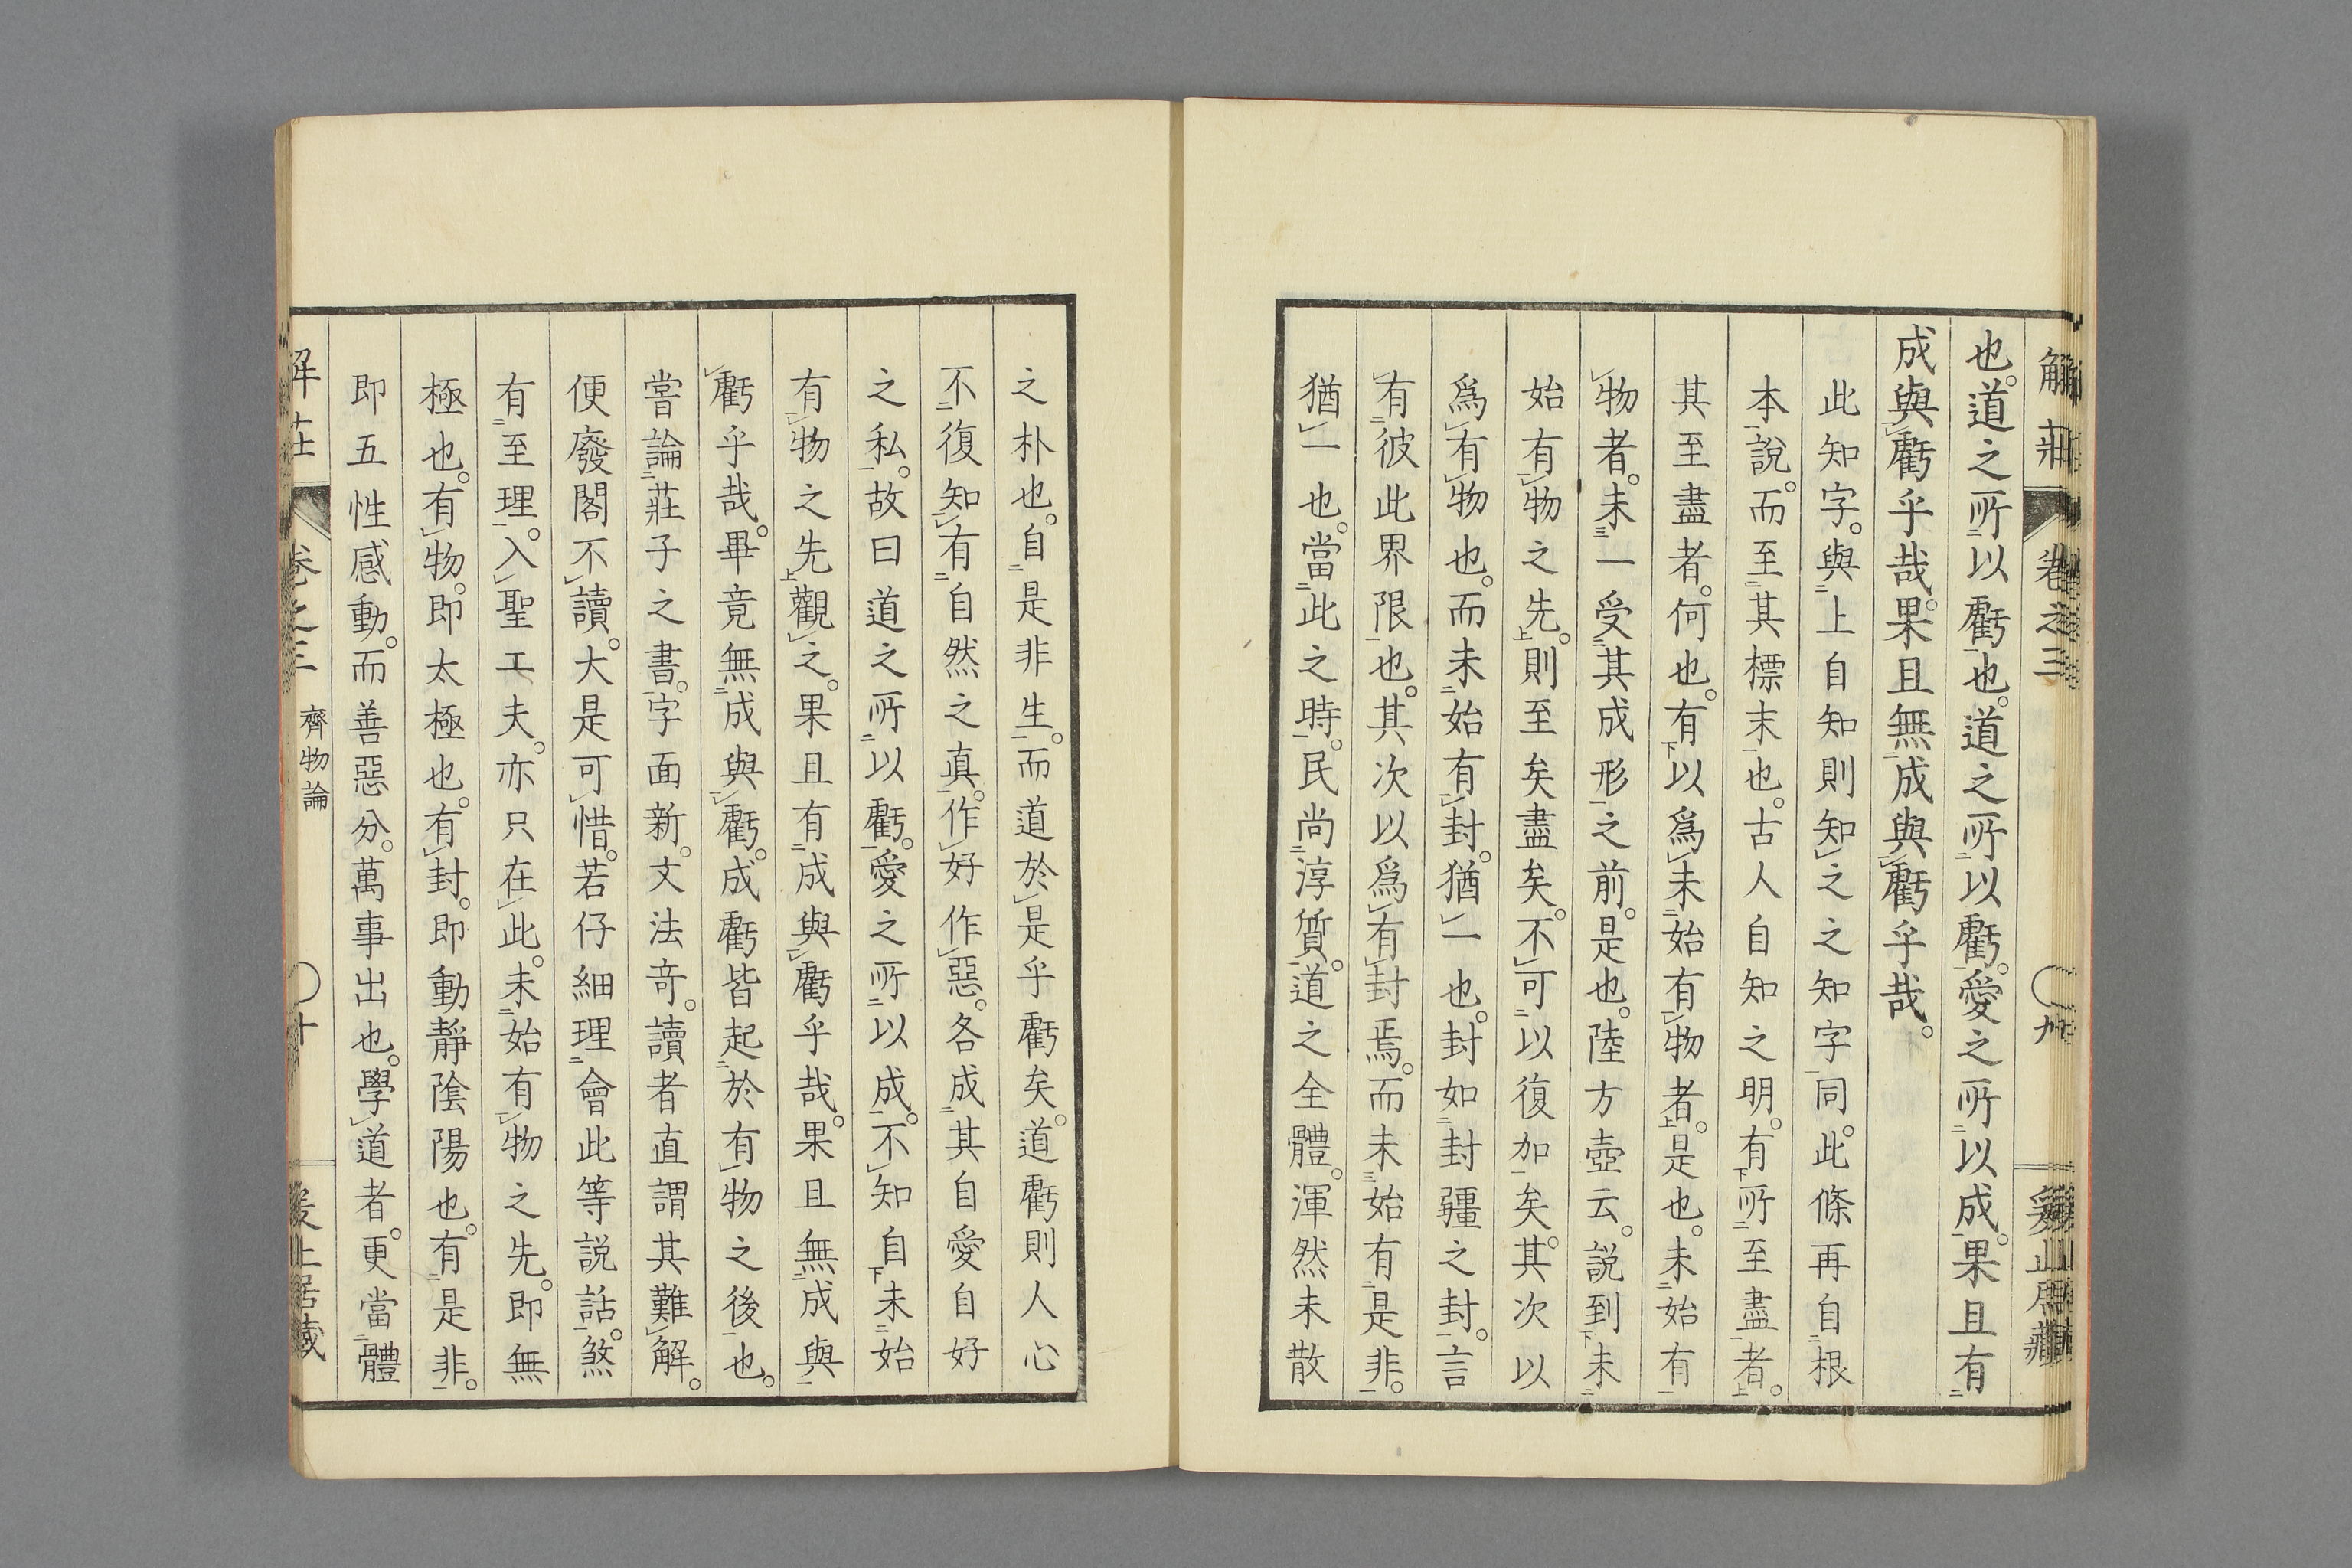 解莊 卷之三 〇九
也。道之所以虧也。道之所以虧。愛之所以成。果且有
成與虧乎哉。果且無成與虧乎哉。
此知字。與上自知則知之之知字同。此條再自根
本說。而至其標末也。古人自知之明。有所至盡者。
其至盡者。何也。有以爲未始有物者。是也。未始有
物者。未一受其成形之前。是也。陸方壺云。説到未
始有物之先。則至矣盡矣。不可以復加矣。其次以
爲有物也。而未始有封。猶一也。封如封疆之封。言
有彼此界限也。其次以爲有封焉。而未始有是非。
猶一也。當此之時。民尚淳質。道之全體。渾然未散
之朴也。自是非生。而道於是乎虧矣。道虧則人心
不復知有自然之真。作好作惡。各成其自愛自好
之私。故曰道之所以虧。愛之所以成。不知自未始
有物之先觀之。果且有成與虧乎哉。果且無成與
虧乎哉。畢竟無成與虧。成虧皆起於有物之後也。
嘗論莊子之書。字面新。文法奇。讀者直謂其難解。
便廢閣不讀。大是可惜。若仔細理會此等説話。煞
有至理。入聖工夫。亦只在此。未始有物之先。即無
極也。有物。即太極也。有封。即動靜陰陽也。有是非。
即五性感動。而善惡分。萬事出也。學道者。更當體
卷之三 齊物論 〇十